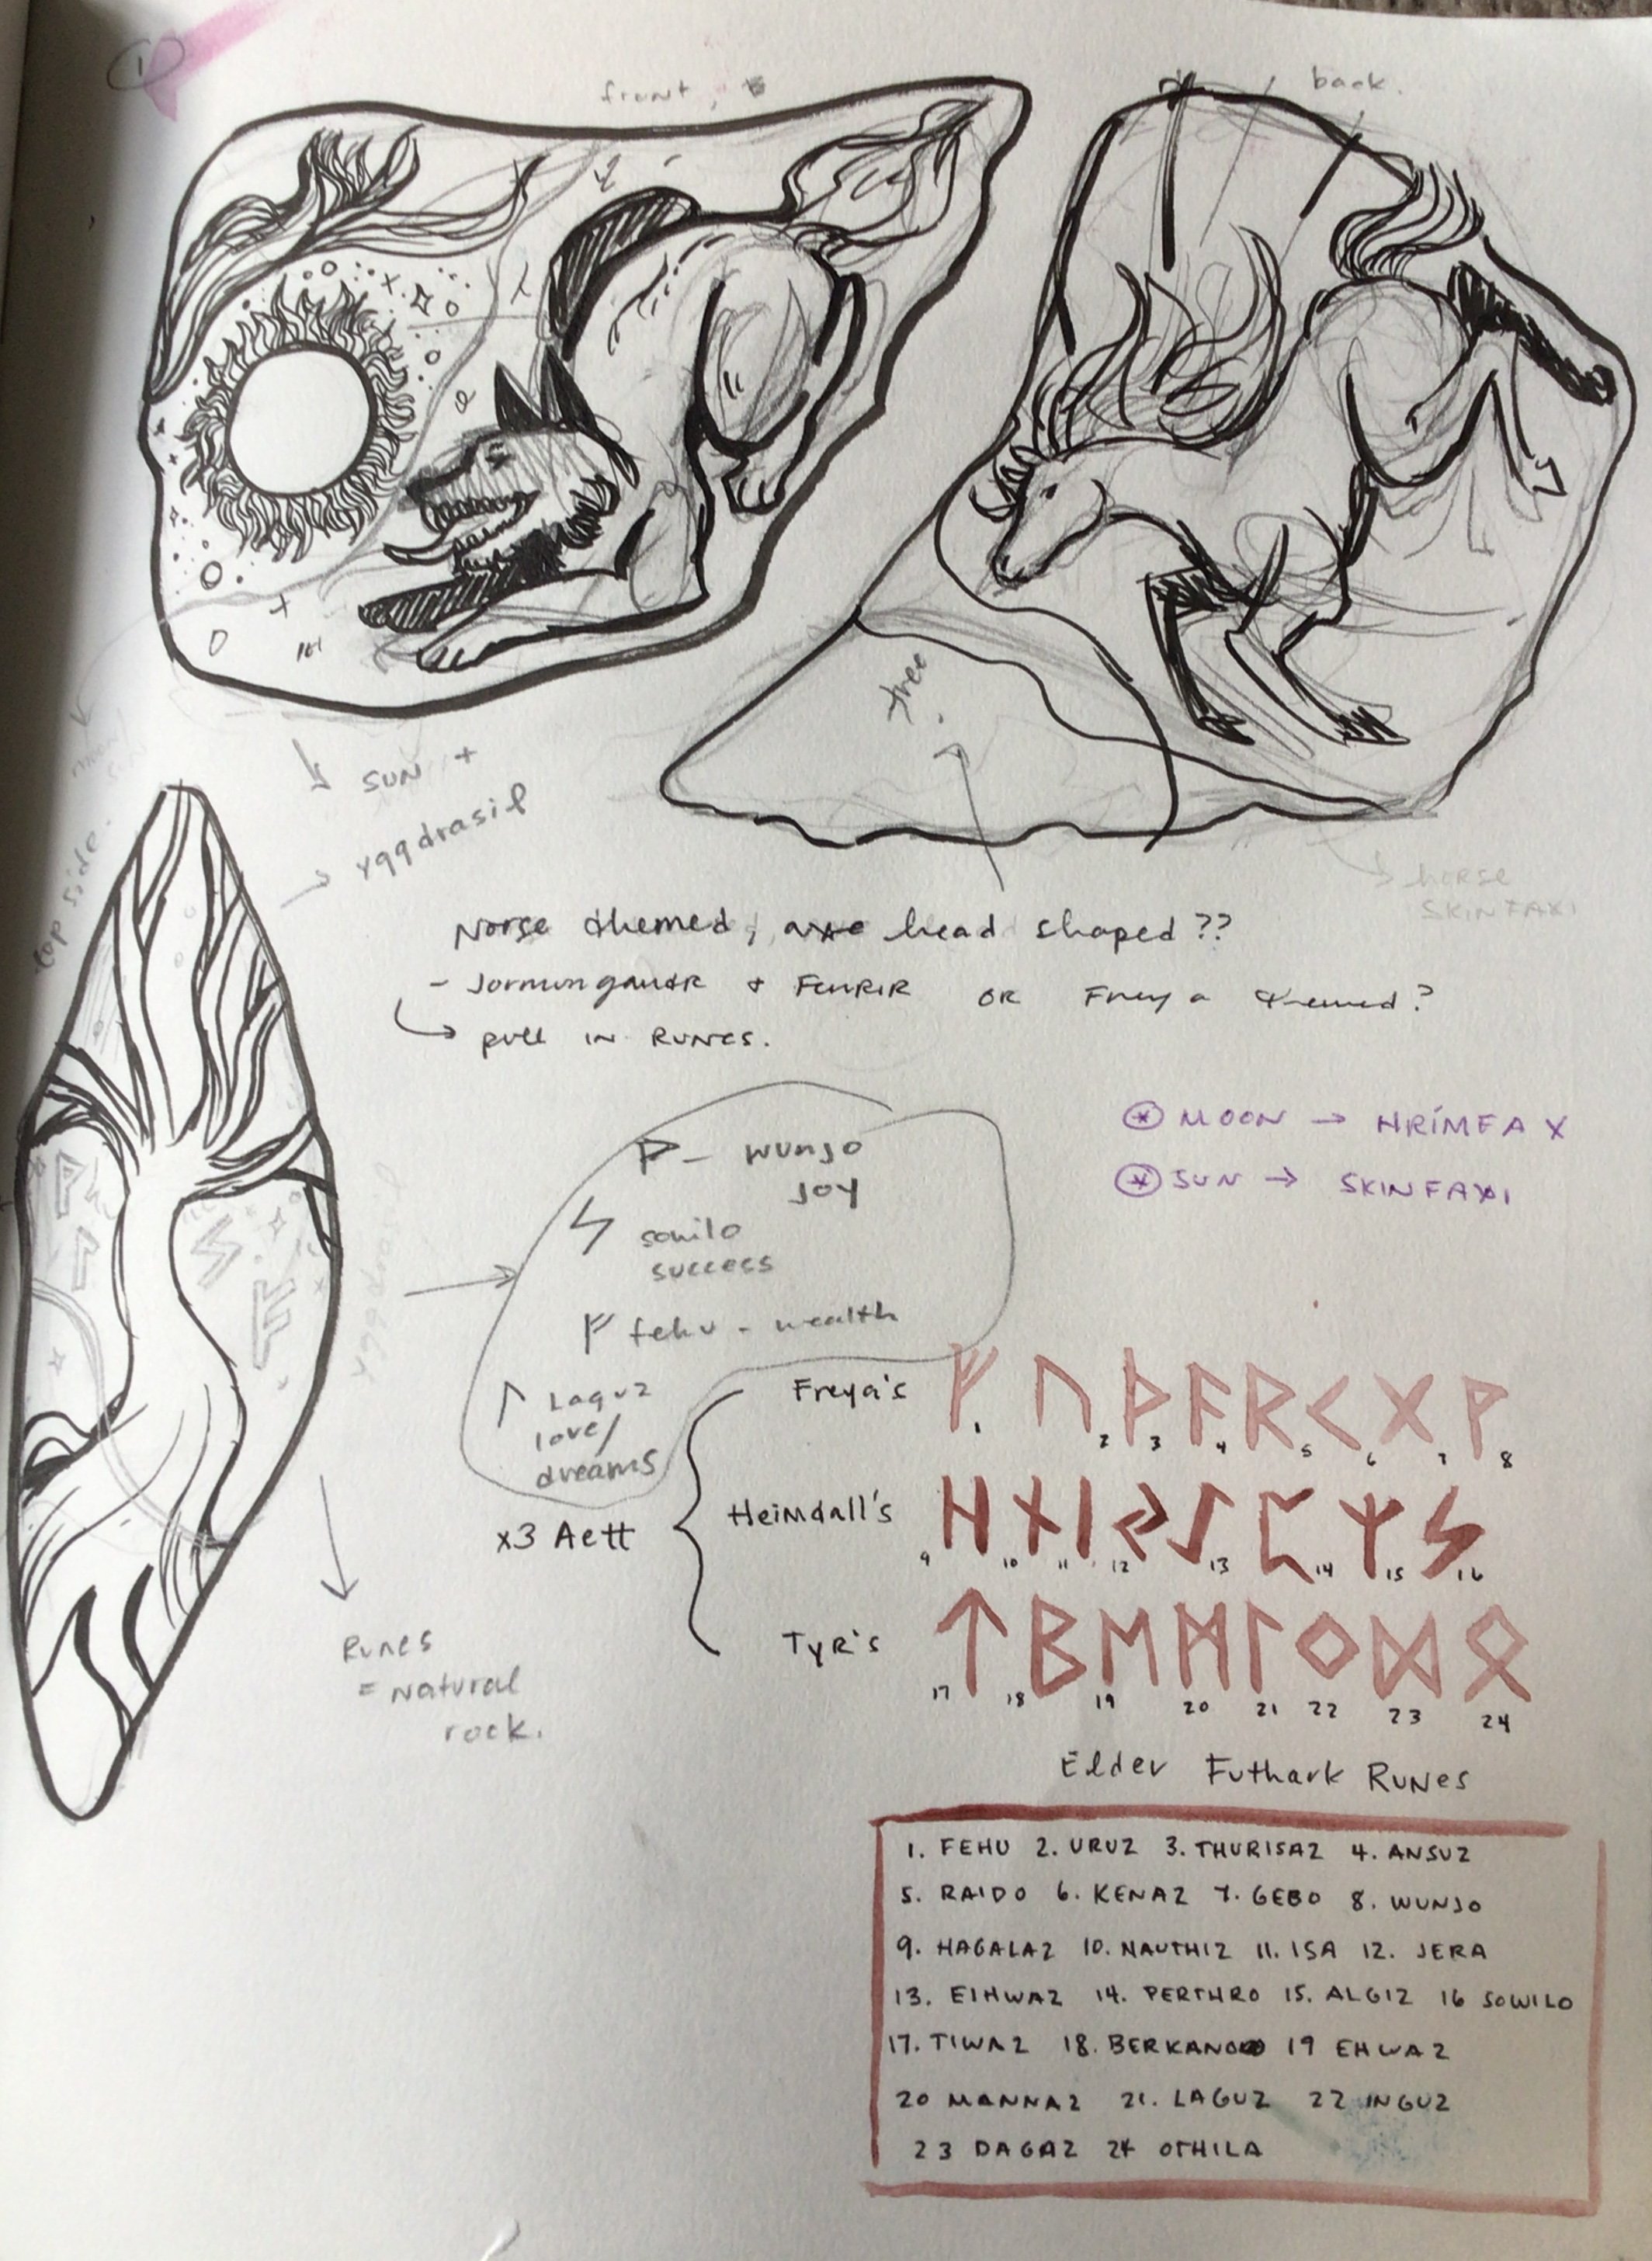 1
front,
back.
tree
SUN +
Yggdrasil
top side.
horse
SKINFAXI
Norse themed, axe head shaped??
- Jormungandr + FENRIR OR Freya themed?
pull IN RUNES.
ᚹ - WUNJO
JOY
ᛊ sowilo
success
ᚠ fehu - wealth
ᛚ Laguz
love/
dreams
⊛ MOON → HRÍMFAX
⊛ SUN → SKINFAXI
yggdrasil
ᚹ ᛚ ᛊ ᚠ
x3 Aett
Freya's ᚠ ᚢ ᚦ ᚨ ᚱ ᚲ ᚷ ᚹ
1 2 3 4 5 6 7 8
Heimdall's ᚺ ᚾ ᛁ ᛃ ᛇ ᛈ ᛉ ᛊ
9 10 11 12 13 14 15 16
Tyr's ᛏ ᛒ ᛖ ᛗ ᛚ ᛜ ᛞ ᛟ
17 18 19 20 21 22 23 24
Runes
= Natural
rock.
Elder Futhark Runes
1. FEHU 2. URUZ 3. THURISAZ 4. ANSUZ
5. RAIDO 6. KENAZ 7. GEBO 8. WUNJO
9. HAGALAZ 10. NAUTHIZ 11. ISA 12. JERA
13. EIHWAZ 14. PERTHRO 15. ALGIZ 16 SOWILO
17. TIWAZ 18. BERKANO 19 EHWAZ
20 MANNAZ 21. LAGUZ 22 INGUZ
23 DAGAZ 24 OTHILA